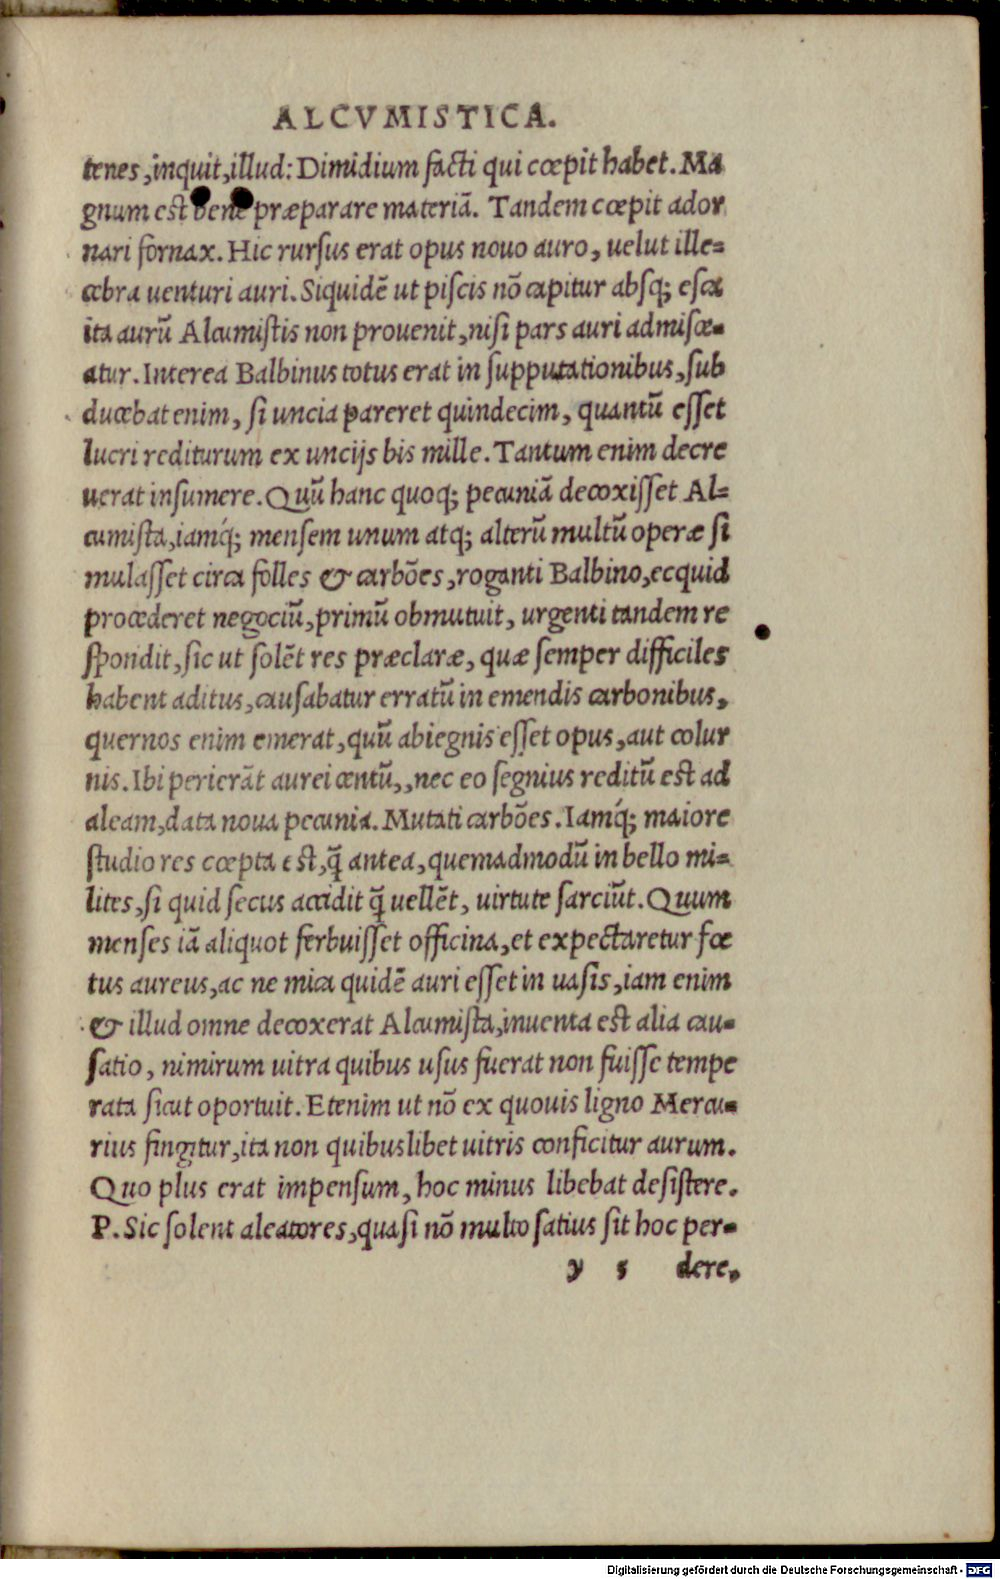 ALCVMISTICA.
tenes, inquit, illud: Dimidium facti qui cœpit habet. Ma
gnum est bene præparare materiā. Tandem cœpit ador
nari fornax. Hic rursus erat opus nouo auro, uelut ille=
cebra uenturi auri. Siquidē ut piscis nō capitur absq; esca
ita aurū Alcumistis non prouenit, nisi pars auri admisce=
atur. Interea Balbinus totus erat in supputationibus, sub
ducebat enim, si uncia pareret quindecim, quantū esset
lucri rediturum ex uncijs bis mille. Tantum enim decre
uerat insumere. Quū hanc quoq; pecuniā decoxisset Al=
cumista, iamq́; mensem unum atq; alterū multū operæ si
mulasset circa folles & carbōes, roganti Balbino, ecquid
procederet negociū, primū obmutuit, urgenti tandem re
spondit, sic ut solēt res præclaræ, quæ semper difficiles
habent aditus, causabatur erratū in emendis carbonibus,
quernos enim emerat, quū abiegnis esset opus, aut colur
nis. Ibi perierāt aurei centū,, nec eo segnius reditū est ad
aleam, data noua pecunia. Mutati carbōes. Iamq́; maiore
studio res cœpta est, q̄ antea, quemadmodū in bello mi=
lites, si quid secus accidit q̄ uellēt, uirtute sarciūt. Quum
menses iā aliquot ferbuisset officina, et expectaretur fœ
tus aureus, ac ne mica quidē auri esset in uasis, iam enim
& illud omne decoxerat Alcumista, inuenta est alia cau=
satio, nimirum uitra quibus usus fuerat non fuisse tempe
rata sicut oportuit. Etenim ut nō ex quouis ligno Mercu=
rius fingitur, ita non quibuslibet uitris conficitur aurum.
Quo plus erat impensum, hoc minus libebat desistere.
P. Sic solent aleatores, quasi nō multo satius sit hoc per=
y s dere,
Digitalisierung gefördert durch die Deutsche Forschungsgemeinschaft - DFG